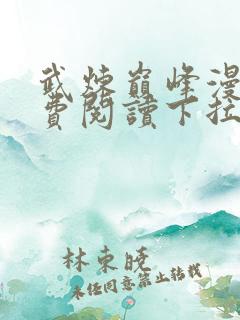 武炼巅峰漫
費閱讀下拉
林東曉
未經同意禁止转载